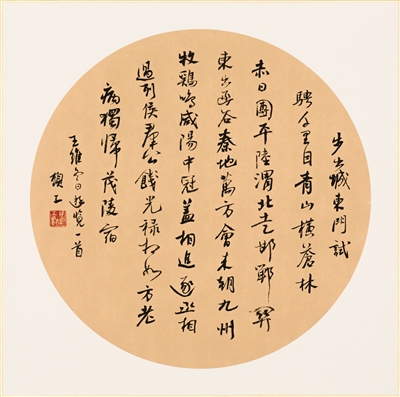 步出城東門試
騁千里目青山橫蒼林
赤日團平陸渭北走邯鄲關
東出函谷秦地萬方會来朝九州
牧鷄鳴咸陽中冠蓋相追逐丞相
過列侯羣公餞光祿相如方老
病獨歸茂陵宿
王維冬日遊覽一首